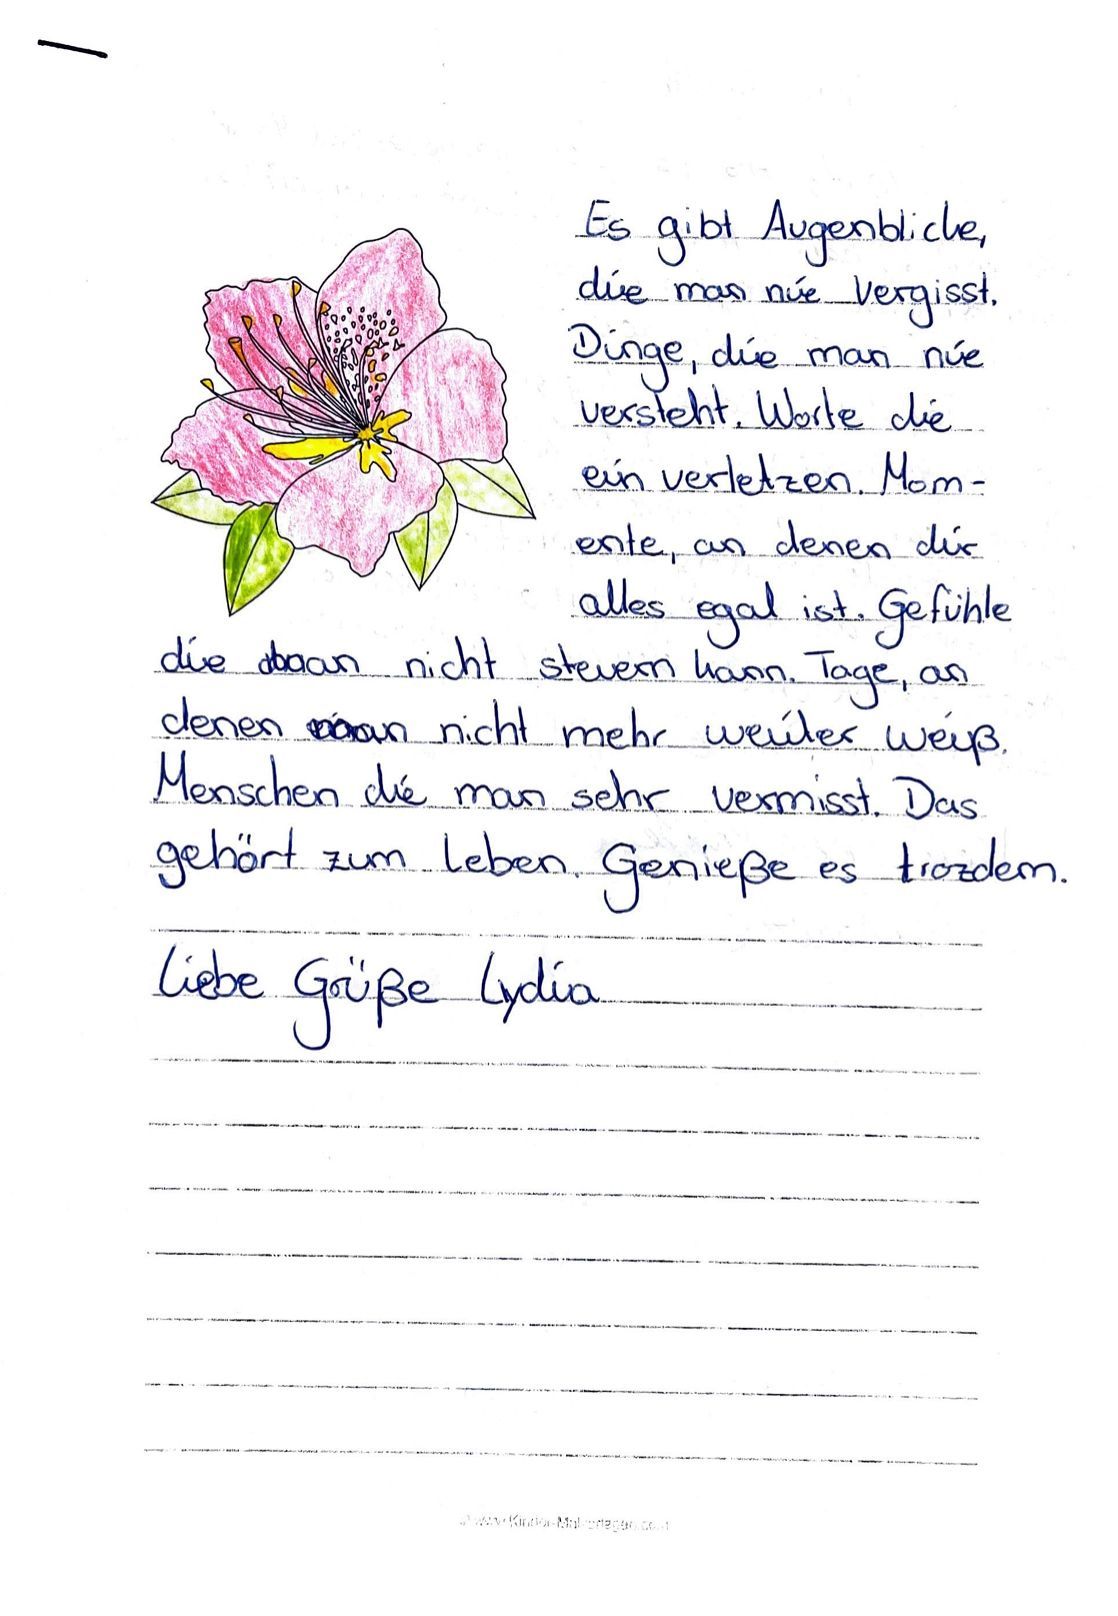 Es gibt Augenblicke,
die man nie vergisst.
Dinge, die man nie
versteht. Worte die
ein verletzen. Mom-
ente, an denen dir
alles egal ist. Gefühle
die man nicht steuern kann. Tage, an
denen man nicht mehr weiter weiß.
Menschen die man sehr vermisst. Das
gehört zum Leben. Genieße es trozdem.
Liebe Grüße Lydia